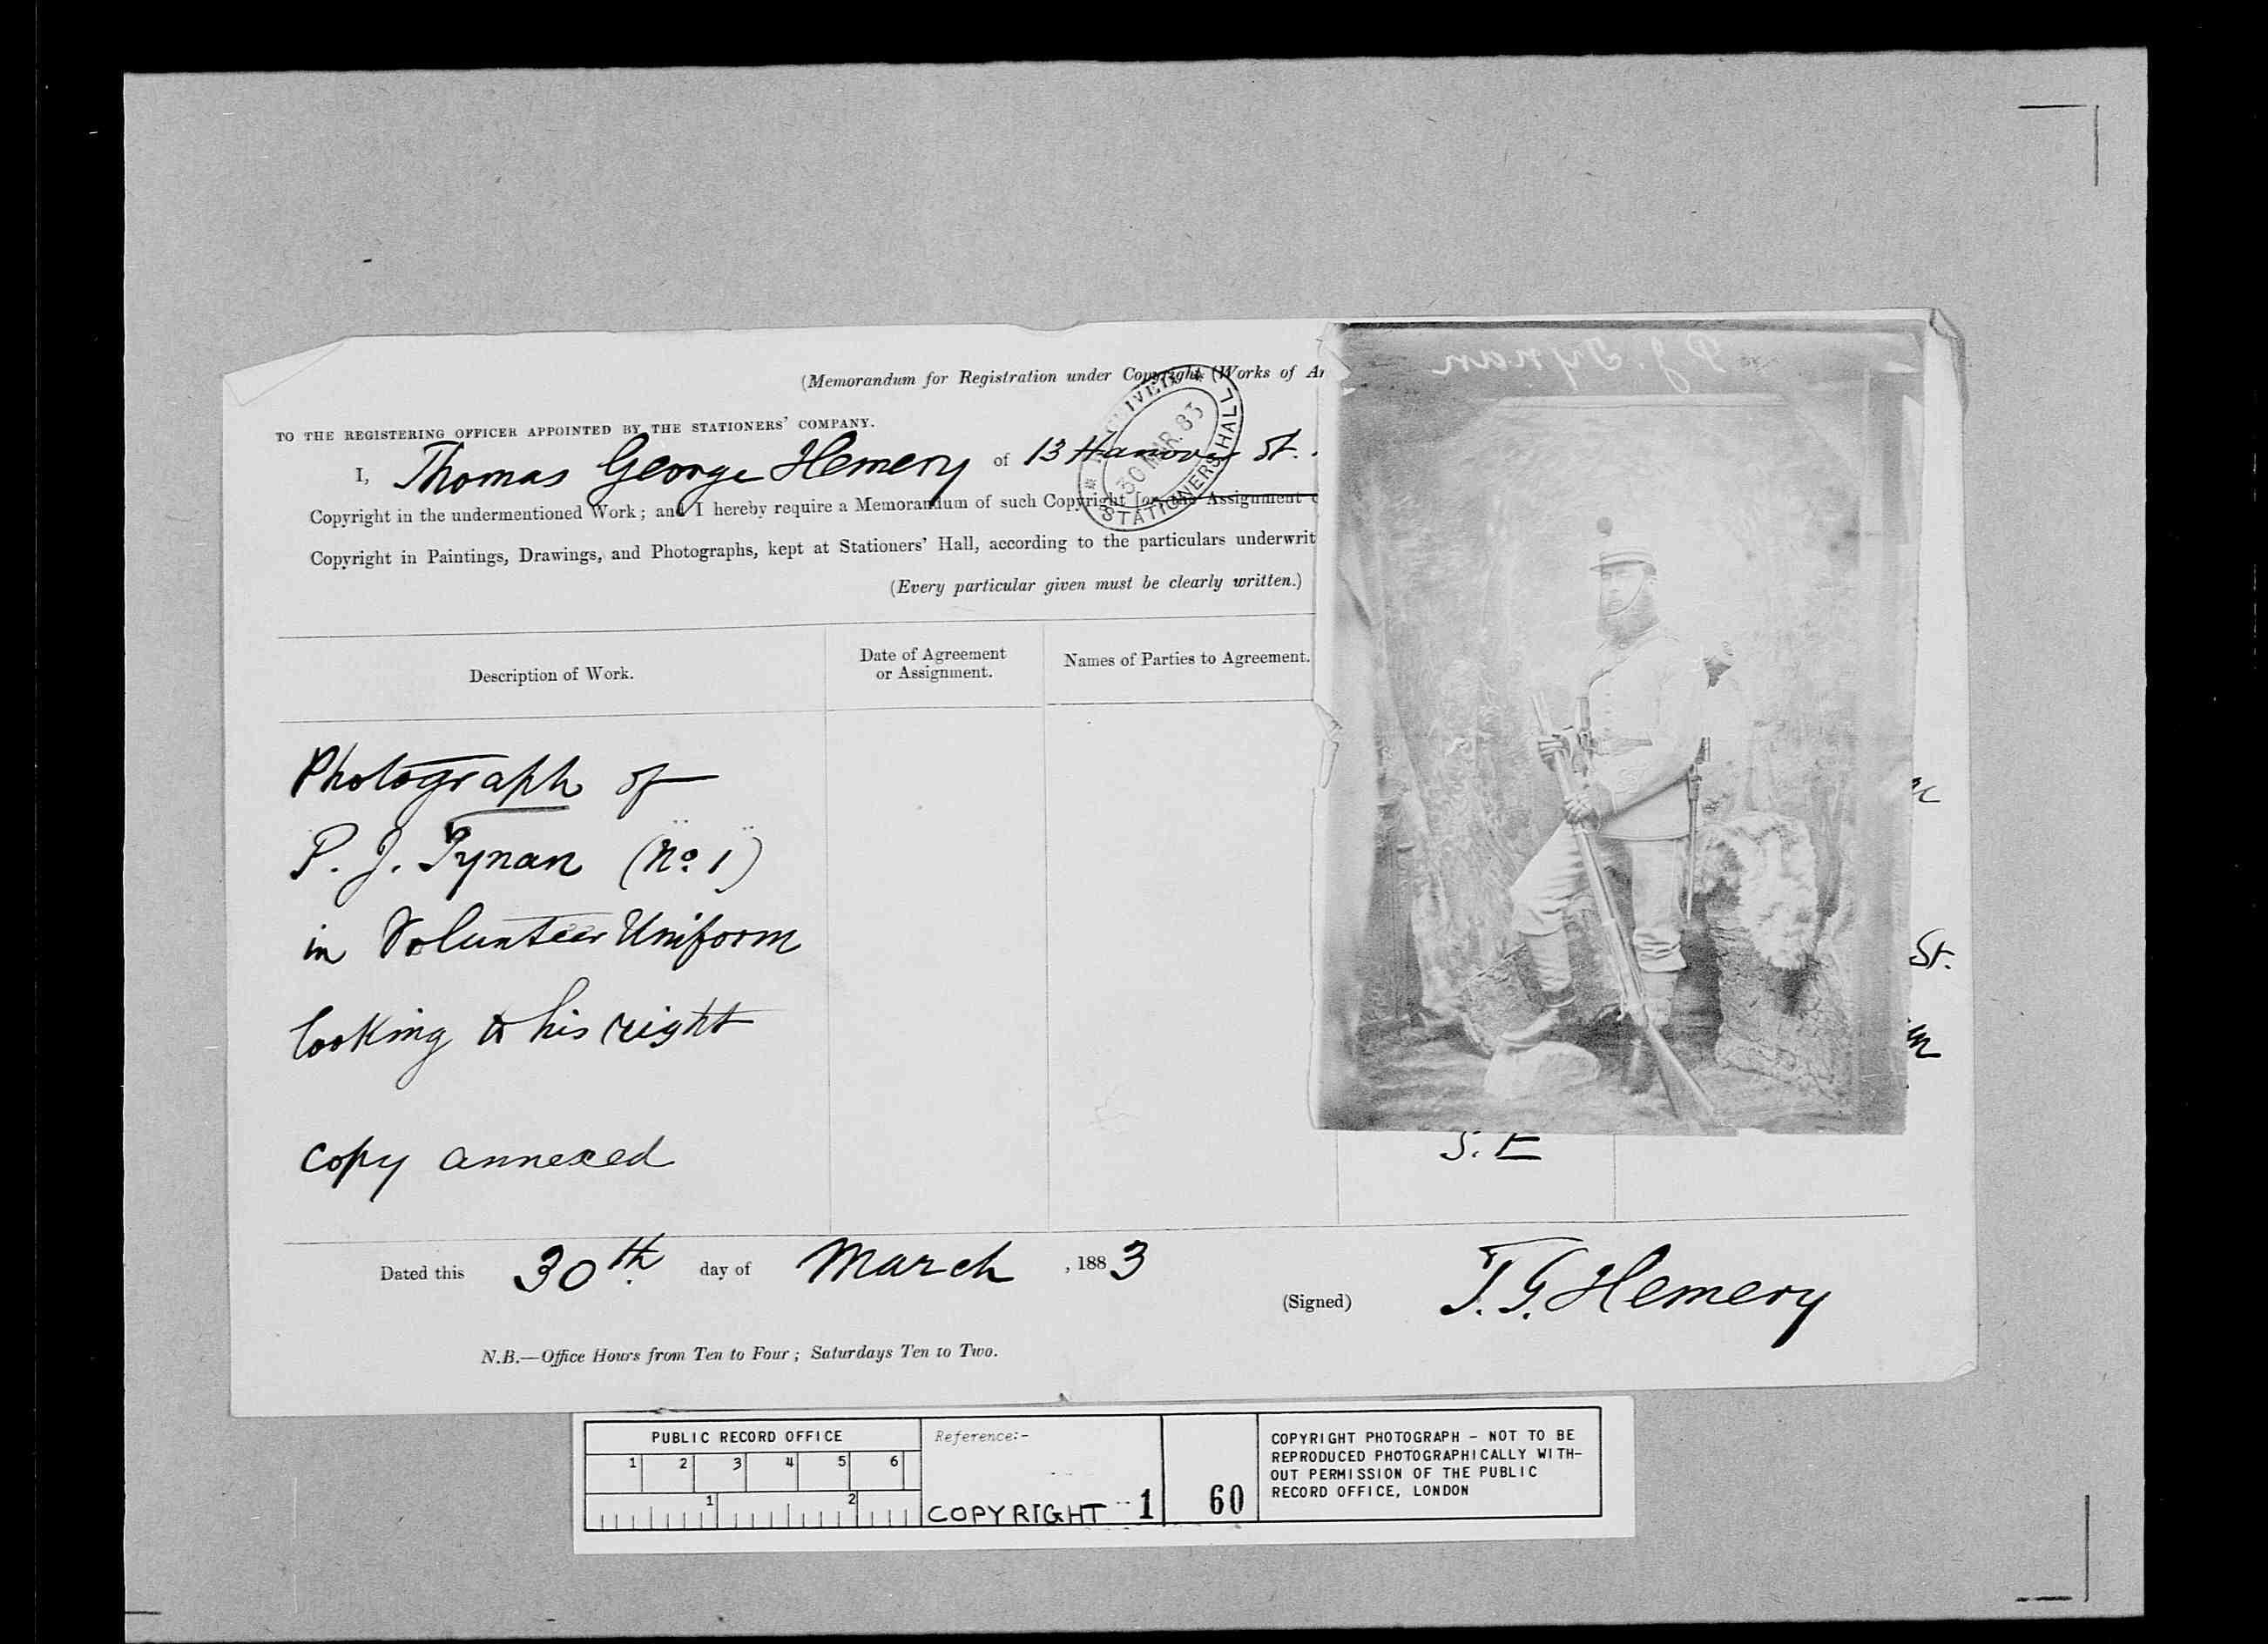 (Memorandum for Registration under Copyright (Works of Ar
P. J. Tynan
TO THE REGISTERING OFFICER APPOINTED BY THE STATIONERS' COMPANY.
I, Thomas George Hemery of 13 Hanover St.
RECEIVED
30 MAR. 83
STATIONERS HALL
Copyright in the undermentioned Work; and I hereby require a Memorandum of such Copyright [or the Assignment o
Copyright in Paintings, Drawings, and Photographs, kept at Stationers' Hall, according to the particulars underwrit
(Every particular given must be clearly written.)
Description of Work.
Date of Agreement
or Assignment.
Names of Parties to Agreement.
Photograph of
P. J. Tynan (No 1)
in Volunteer Uniform
looking to his right
copy annexed
St.
S. E
Dated this 30th day of March, 1883
(Signed) T. G. Hemery
N.B.—Office Hours from Ten to Four; Saturdays Ten to Two.
PUBLIC RECORD OFFICE
1 2 3 4 5 6
1 2
Reference:-
COPYRIGHT 1
60
COPYRIGHT PHOTOGRAPH - NOT TO BE
REPRODUCED PHOTOGRAPHICALLY WITH-
OUT PERMISSION OF THE PUBLIC
RECORD OFFICE, LONDON